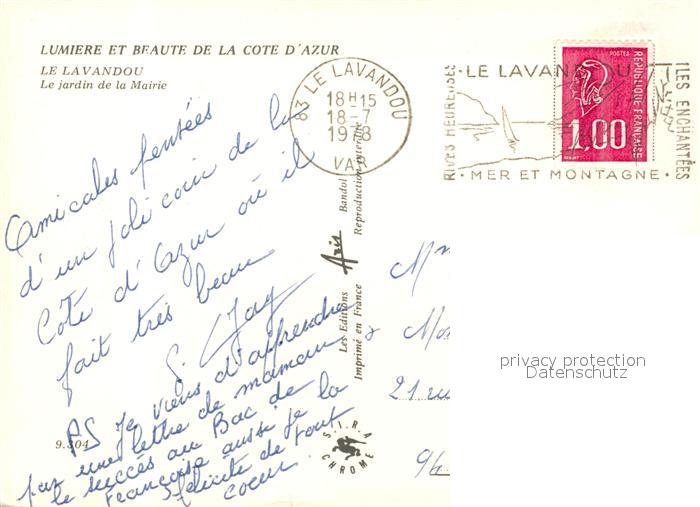 LUMIERE ET BEAUTE DE LA COTE D'AZUR
LE LAVANDOU
Le jardin de la Mairie
83 LE LAVANDOU
18H15
18-7
1978
VAR
RIVES HEUREUSES
LE LAVANDOU
ILES ENCHANTÉES
MER ET MONTAGNE
POSTES
REPUBLIQUE FRANÇAISE
1,00
Amicales pensées
d'un joli coin de la
Côte d'Azur où il
fait très beau
G. Jay
PS Je viens d'apprendre
par une lettre de maman
le succès au Bac de
Françoise aussi je la
félicite de tout
coeur.
9.304
Les Editions Aris Bandol
Imprimé en France Reproduction interdite
S.I.R.A.
CHROME
M
21 rue
94
privacy protection
Datenschutz